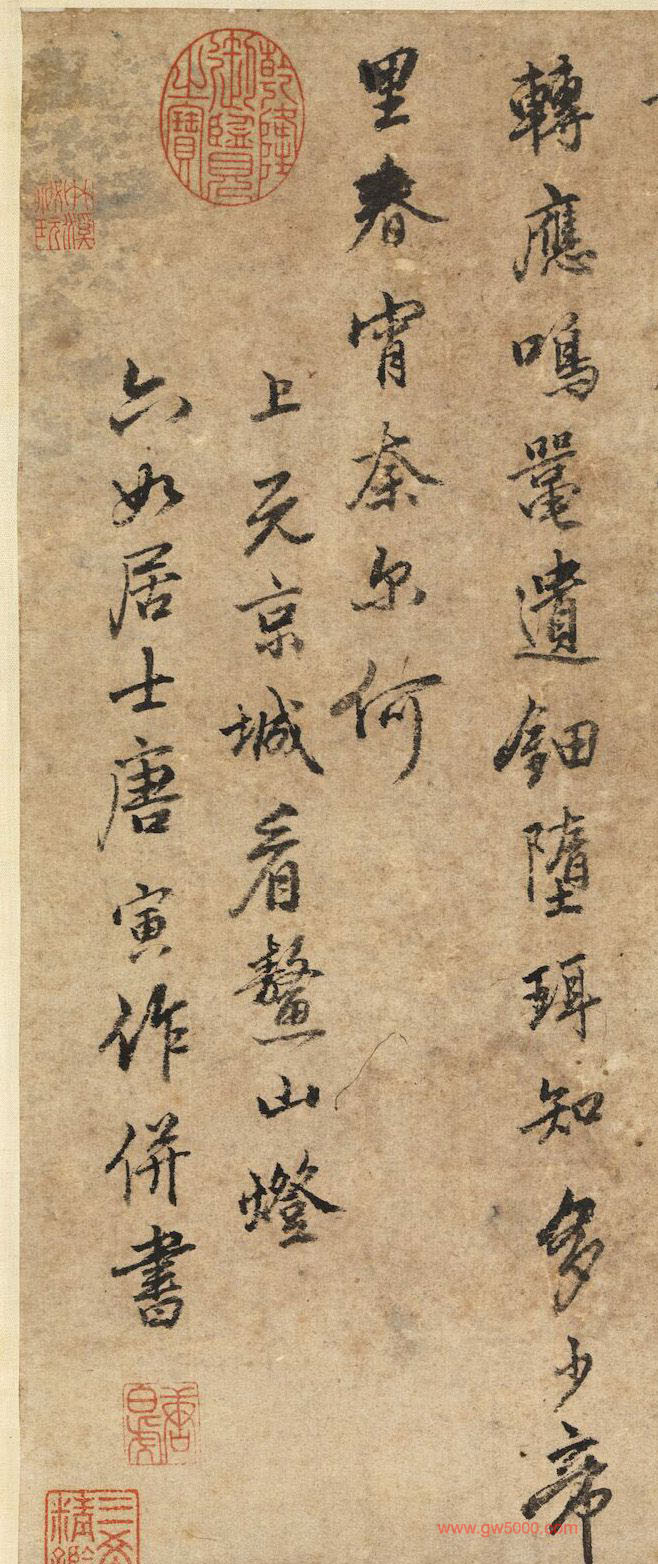 轉應鳴鼉遺鈿墮珥知多少帝
里春宵奈尔何
上元京城看鰲山燈
六如居士唐寅作併書
乾隆御覽之寶
唐伯虎
www.gw5000.com